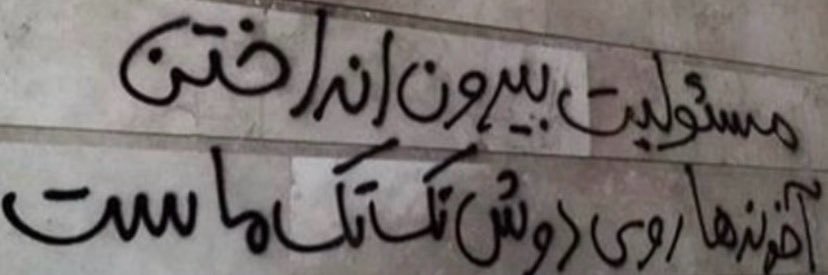 مسئولیت بیرون انداختن
آخوندها روی دوش تک تک ماست